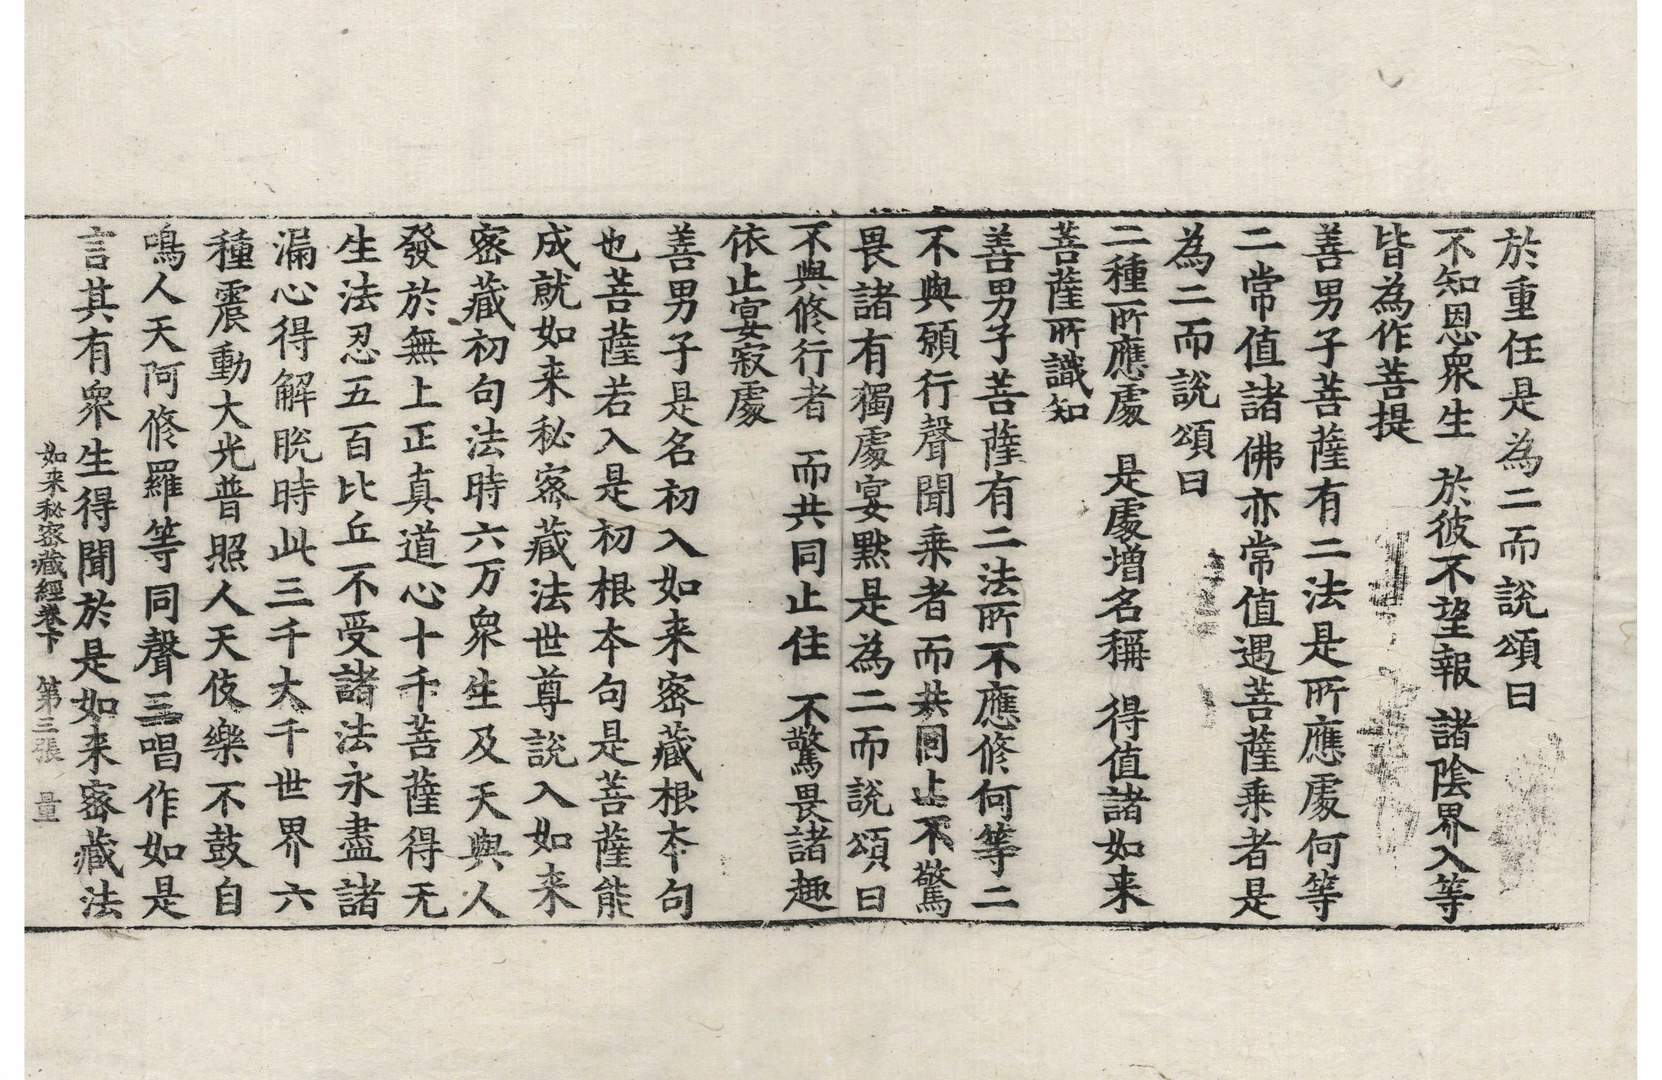 於重任是為二而說頌曰
不知恩衆生　於彼不望報　諸陰界入等
皆為作菩提
善男子菩薩有二法是所應處何等
二常值諸佛亦常值遇菩薩乗者是
為二而說頌曰
二種所應處　是處增名稱　得值諸如来
菩薩所識知
善男子菩薩有二法所不應修何等二
不與願行聲聞乗者而共同止不驚
畏諸有獨處宴黙是為二而說頌曰
不與修行者　而共同止住　不驚畏諸趣
依止宴寂處
善男子是名初入如来密藏根本句
也菩薩若入是初根本句是菩薩能
成就如来秘密藏法世尊說入如来
密藏初句法時六万衆生及天與人
發於無上正真道心十千菩薩得无
生法忍五百比丘不受諸法永盡諸
漏心得解脫時此三千大千世界六
種震動大光普照人天伎樂不鼓自
鳴人天阿修羅等同聲三唱作如是
言其有衆生得聞於是如来密藏法
如来秘密藏經卷下　第三張　量